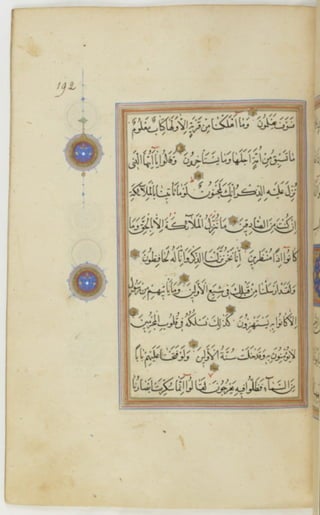 192
فسوف يعلمون وما اهلكنا من قرية الا ولها كتاب معلوم
ما تسبق من امة اجلها وما يستأخرون وقالوا يا ايها الذى
نزل عليه الذكر انك لمجنون لو ما تأتينا بالملائكة
ان كنت من الصادقين ما ننزل الملائكة الا بالحق وما
كانوا اذا منظرين انا نحن نزلنا الذكر وانا له لحافظون
ولقد ارسلنا من قبلك فى شيع الاولين وما يأتيهم من رسول
الا كانوا به يستهزؤن كذلك نسلكه فى قلوب المجرمين
لا يؤمنون به وقد خلت سنة الاولين ولو فتحنا عليهم بابا
من السماء فظلوا فيه يعرجون لقالوا انما سكرت ابصارنا